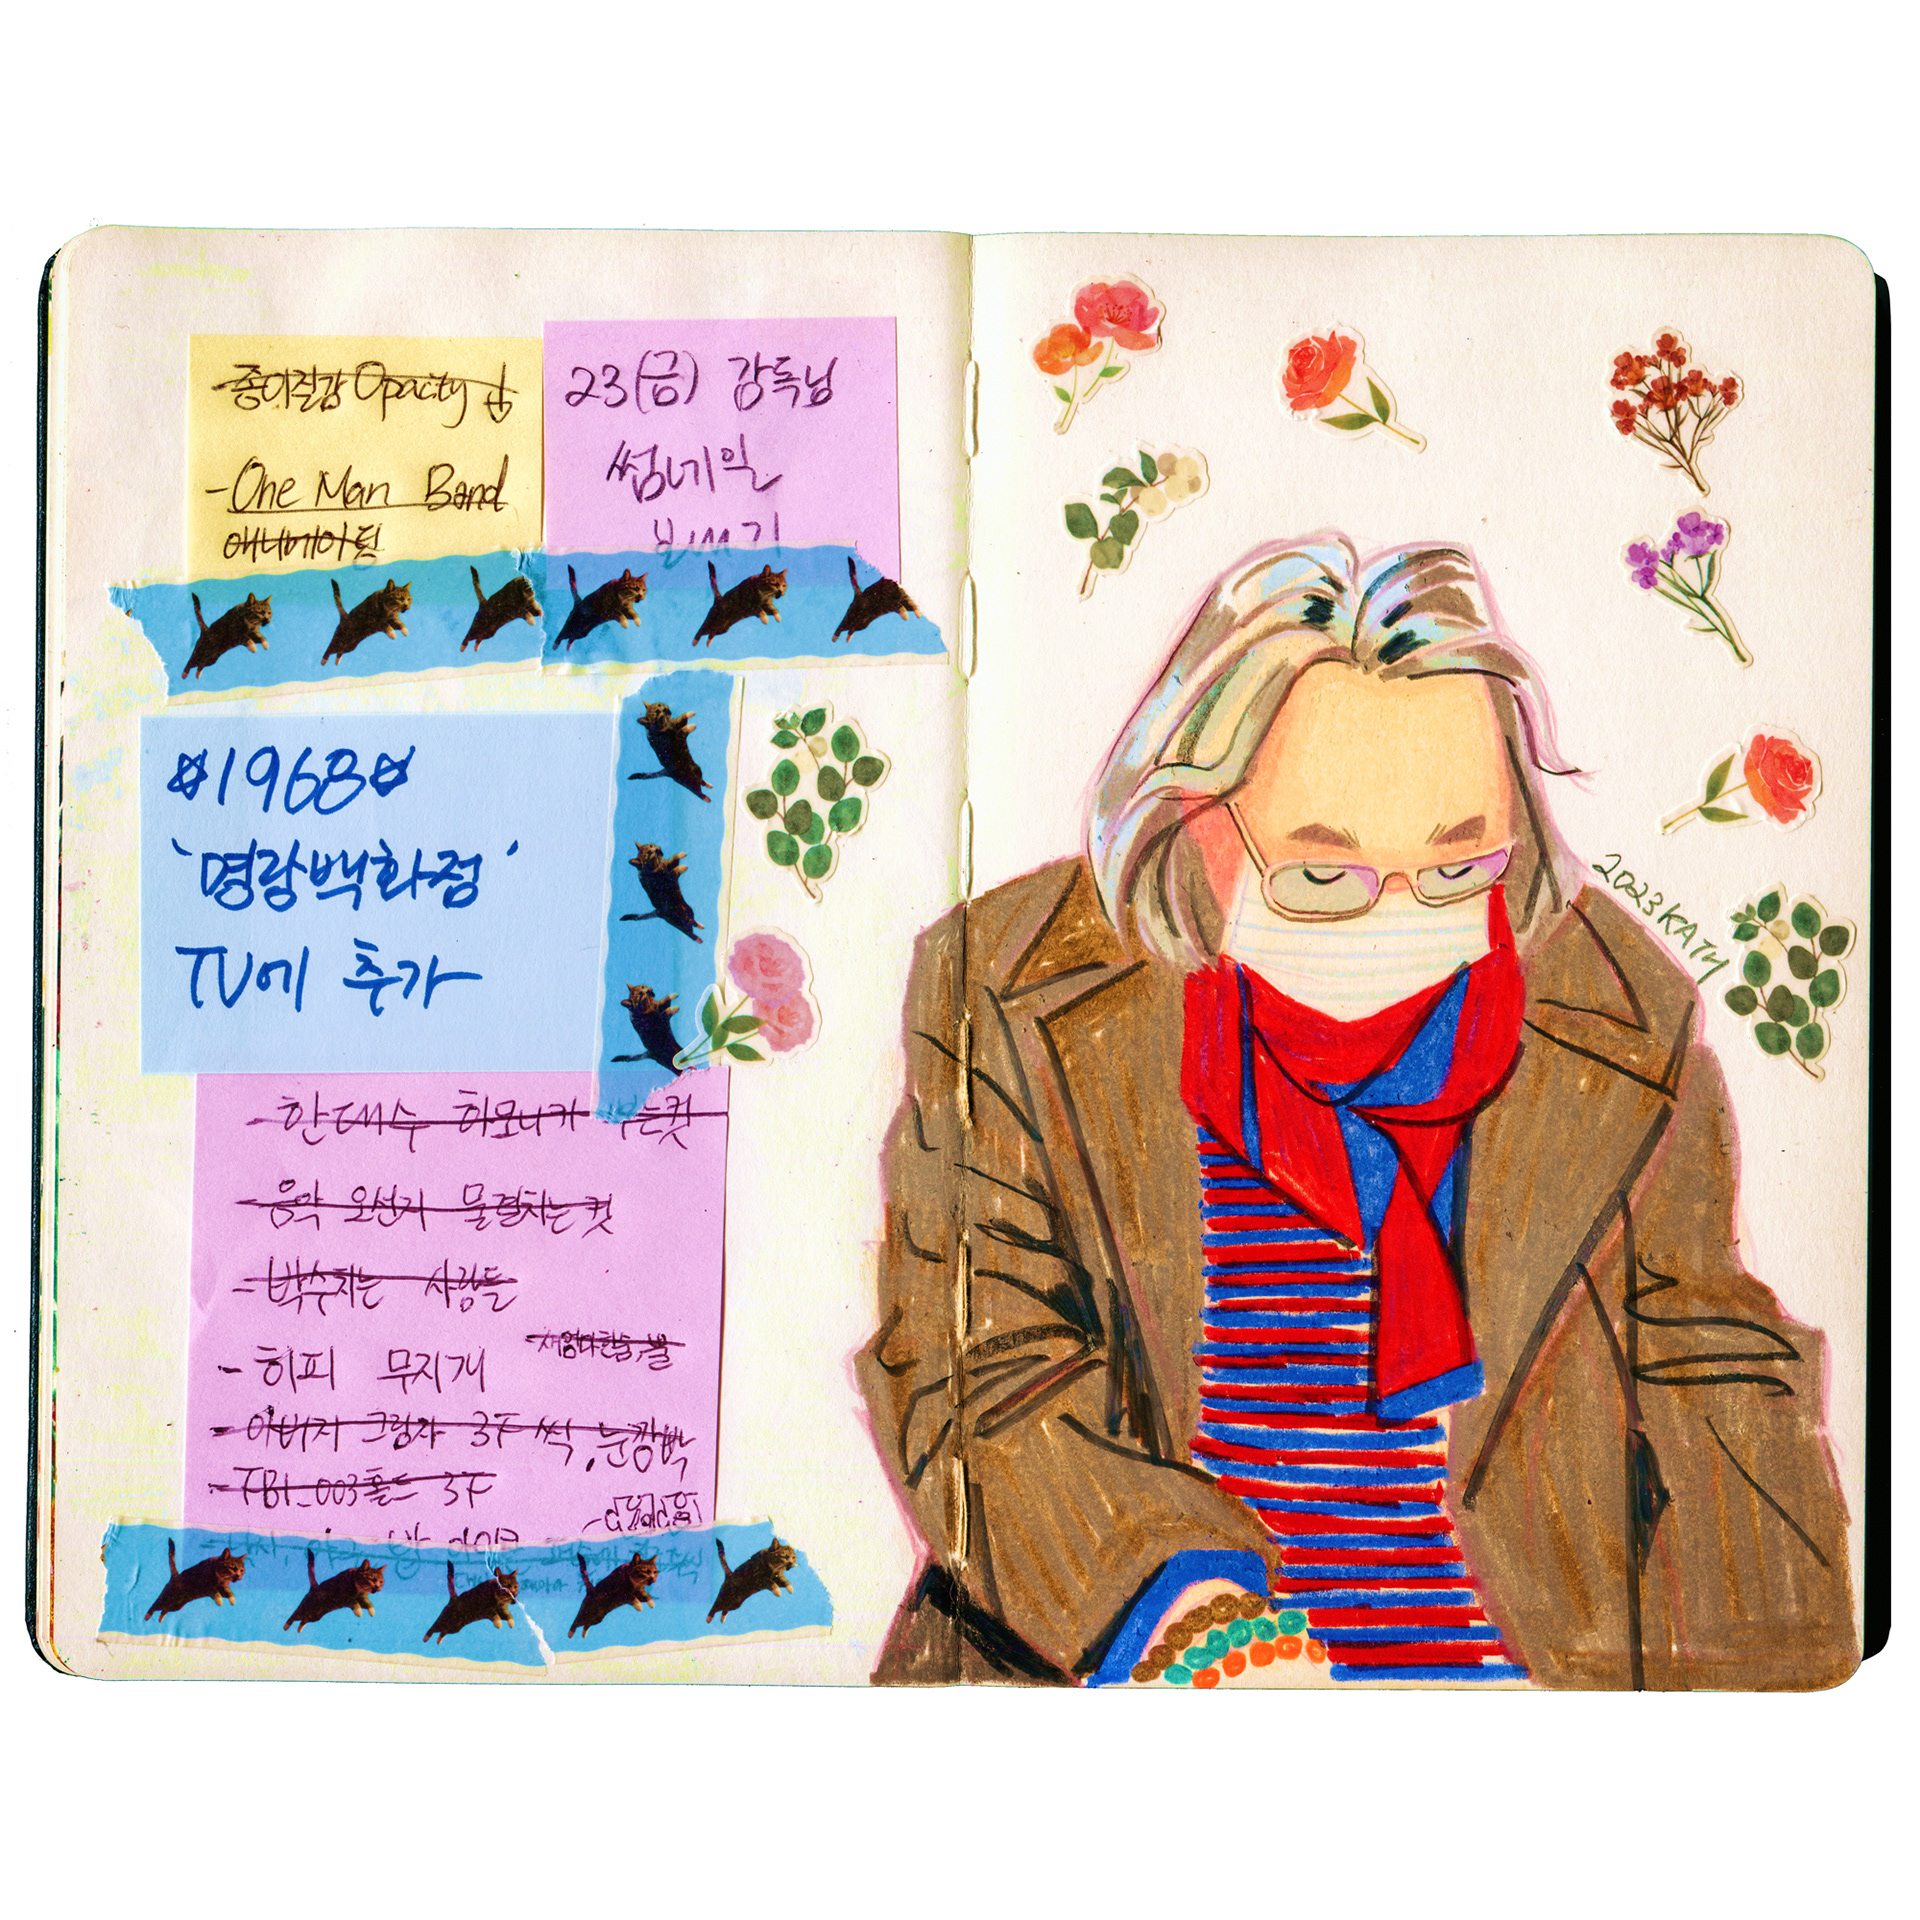 종이질감 Opacity ↓
-One Man Band
애니메이팅
23(금) 감독님
썸네일
보내기
☆1968☆
'명랑백화점'
TV에 추가
- 한대수 하모니카 부는컷
- 음악 오선지 물결치는 컷
- 박수치는 사람들
- 히피 무지개
- 아버지 그림자 3F 씩, 눈깜빡
- TB1_003홀드 3F
2023 KATH